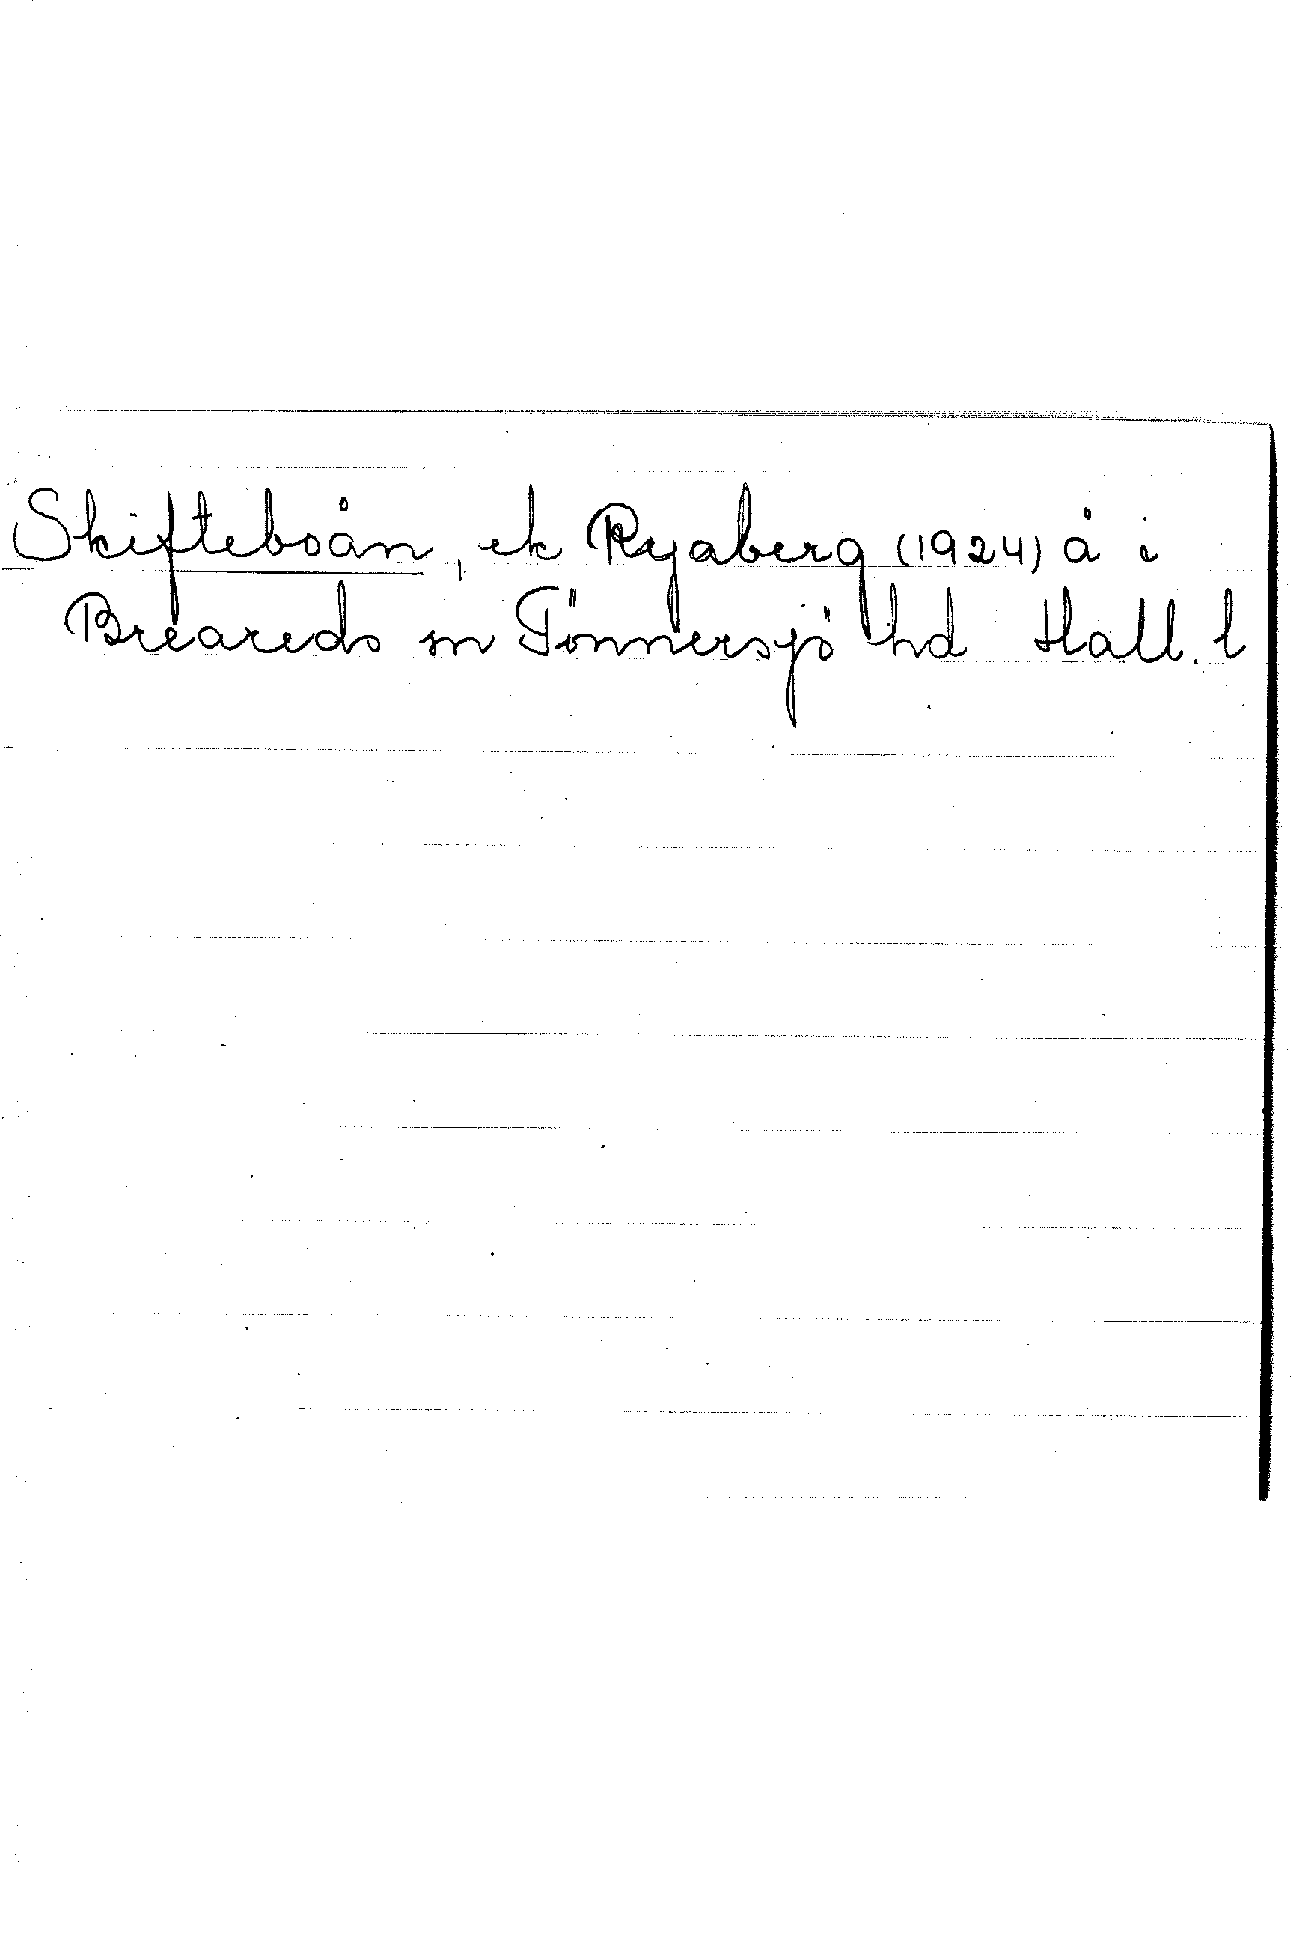 Skifteboån, ek Ryaberg (1924) å i
Breareds sn Tönnersjö hd Hall. l